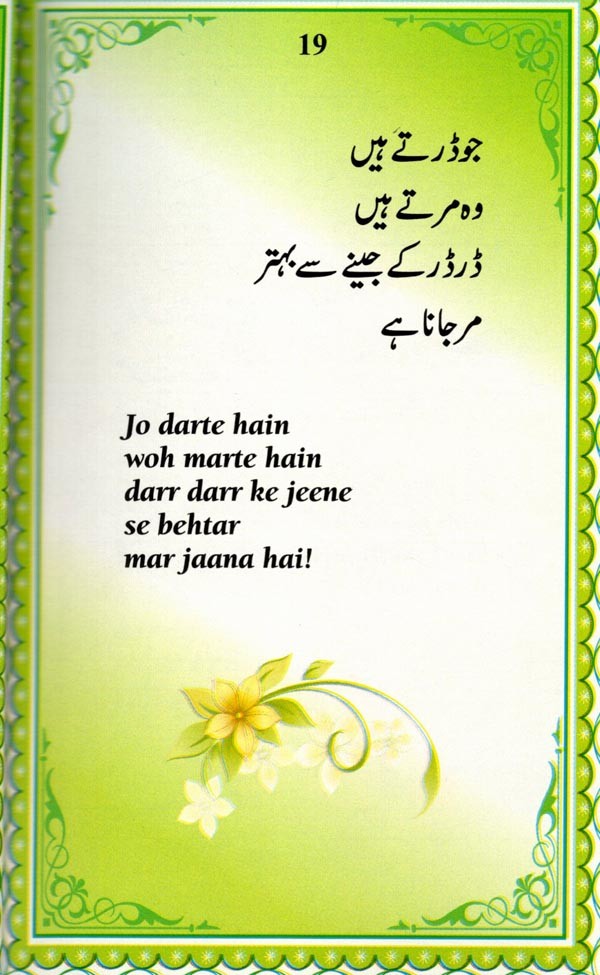 19
جو ڈرتے ہیں
وہ مرتے ہیں
ڈر ڈر کے جینے سے بہتر
مر جانا ہے
Jo darte hain
woh marte hain
darr darr ke jeene
se behtar
mar jaana hai!